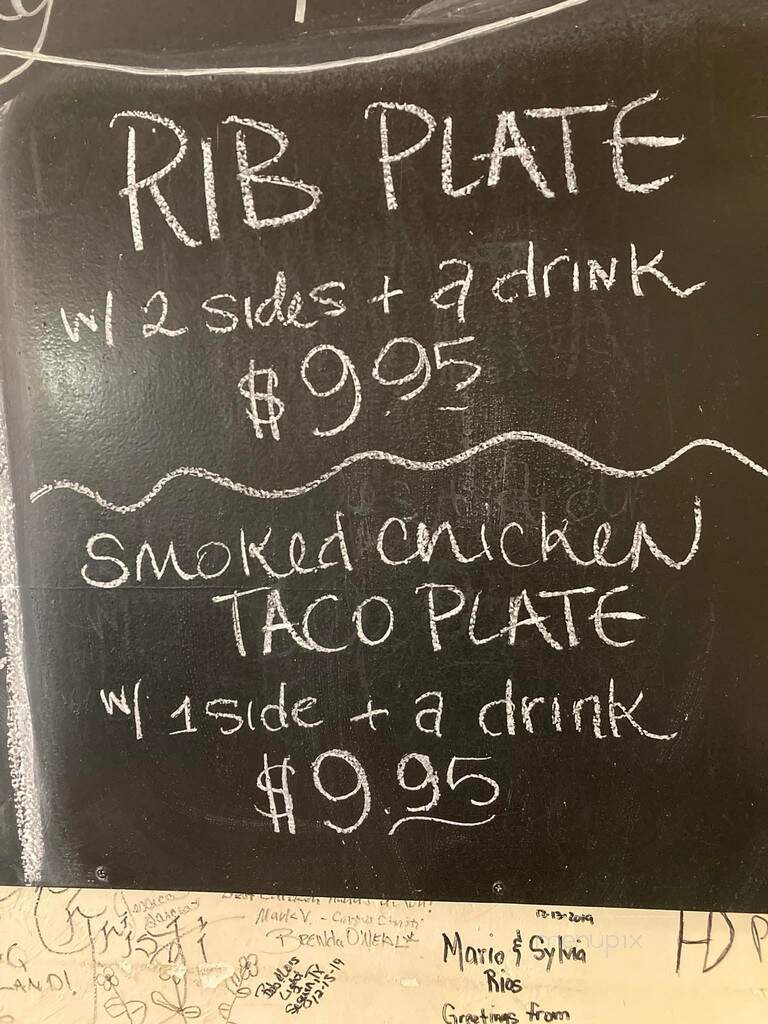 RIB PLATE
w/ 2 sides + a drink
$9.95
smoked chicken
TACO PLATE
w/ 1 side + a drink
$9.95
Jessica
Garcia
Christi
Mark V. - Corpus Christi
Brenda O'Neal
LAND!
Light
Seguin, TX
12-15-19
12-13-2019
Mario & Sylvia
Rios
Greetings from
HD
menupix